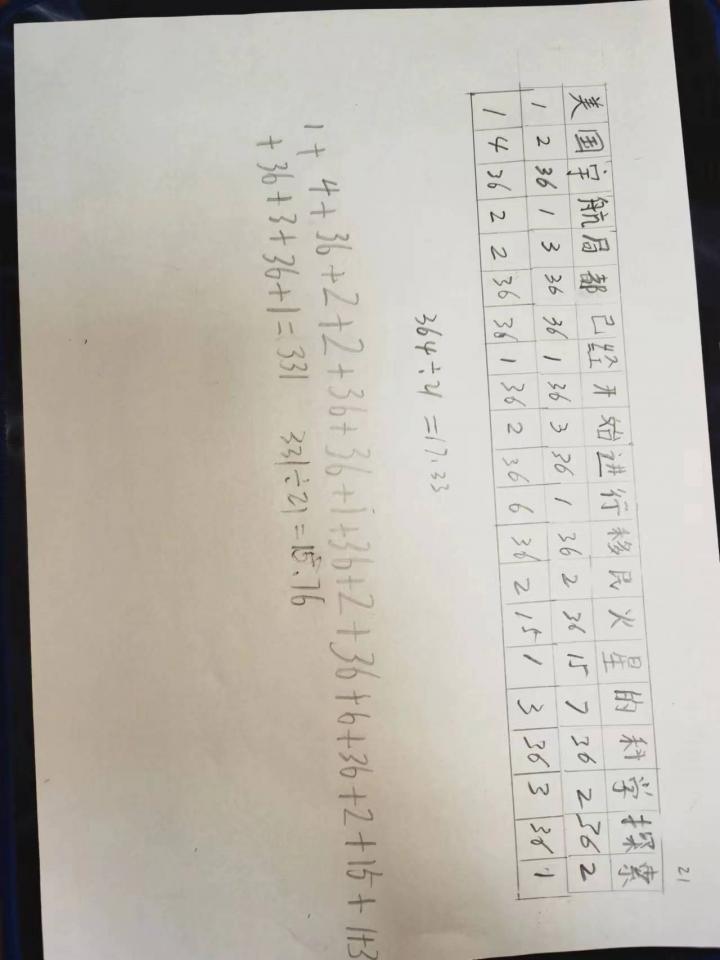 21
美 国 宇 航 局 都 已 经 开 始 进 行 移 民 火 星 的 科 学 探 索
1 2 36 1 3 36 36 1 36 3 36 1 36 2 36 15 7 36 2 36 2
1 4 36 2 2 36 36 1 36 2 36 6 36 2 15 1 3 36 3 36 1
364÷21=17.33
1+4+36+2+2+36+36+1+36+2+36+6+36+2+15+1+3
+36+3+36+1=331 331÷21=15.76